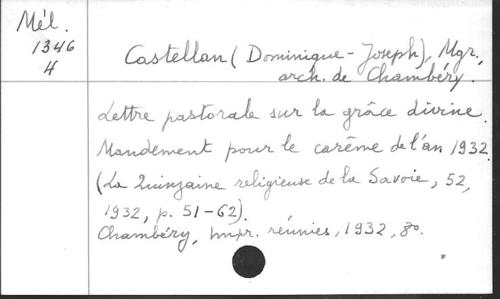 Mél.
1346
4
Castellan (Dominique-Joseph), Mgr.,
arch. de Chambéry.
Lettre pastorale sur la grâce divine.
Mandement pour le carême de l'an 1932
(La Quinzaine religieuse de la Savoie, 52,
1932, p. 51-62).
Chambéry, Impr. réunies, 1932, 8º.